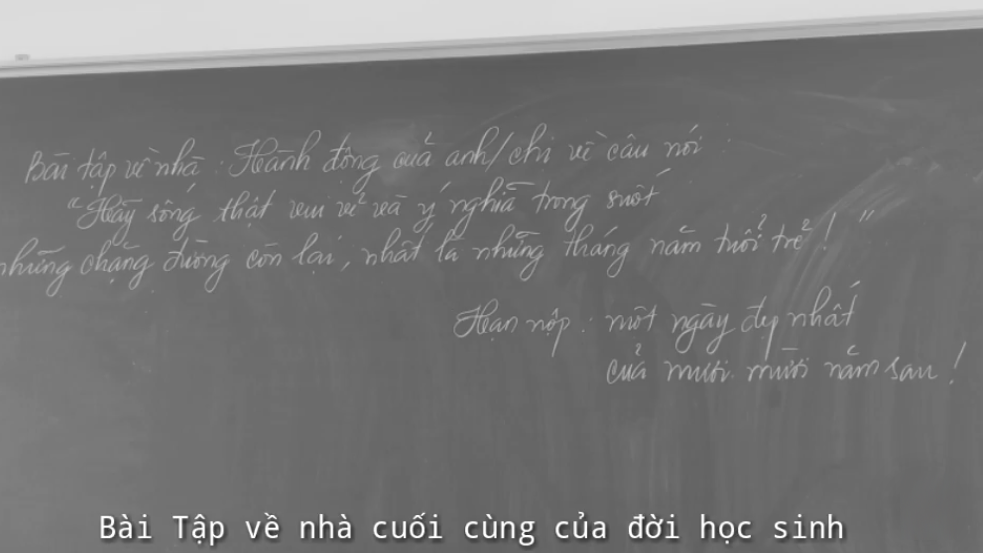 Bài tập về nhà : Hành động của anh/chị về câu nói :
"Hãy sống thật vui vẻ và ý nghĩa trong suốt
những chặng đường còn lại, nhất là những tháng năm tuổi trẻ ! "
Hạn nộp : một ngày đẹp nhất
của mười mười năm sau !
Bài Tập về nhà cuối cùng của đời học sinh